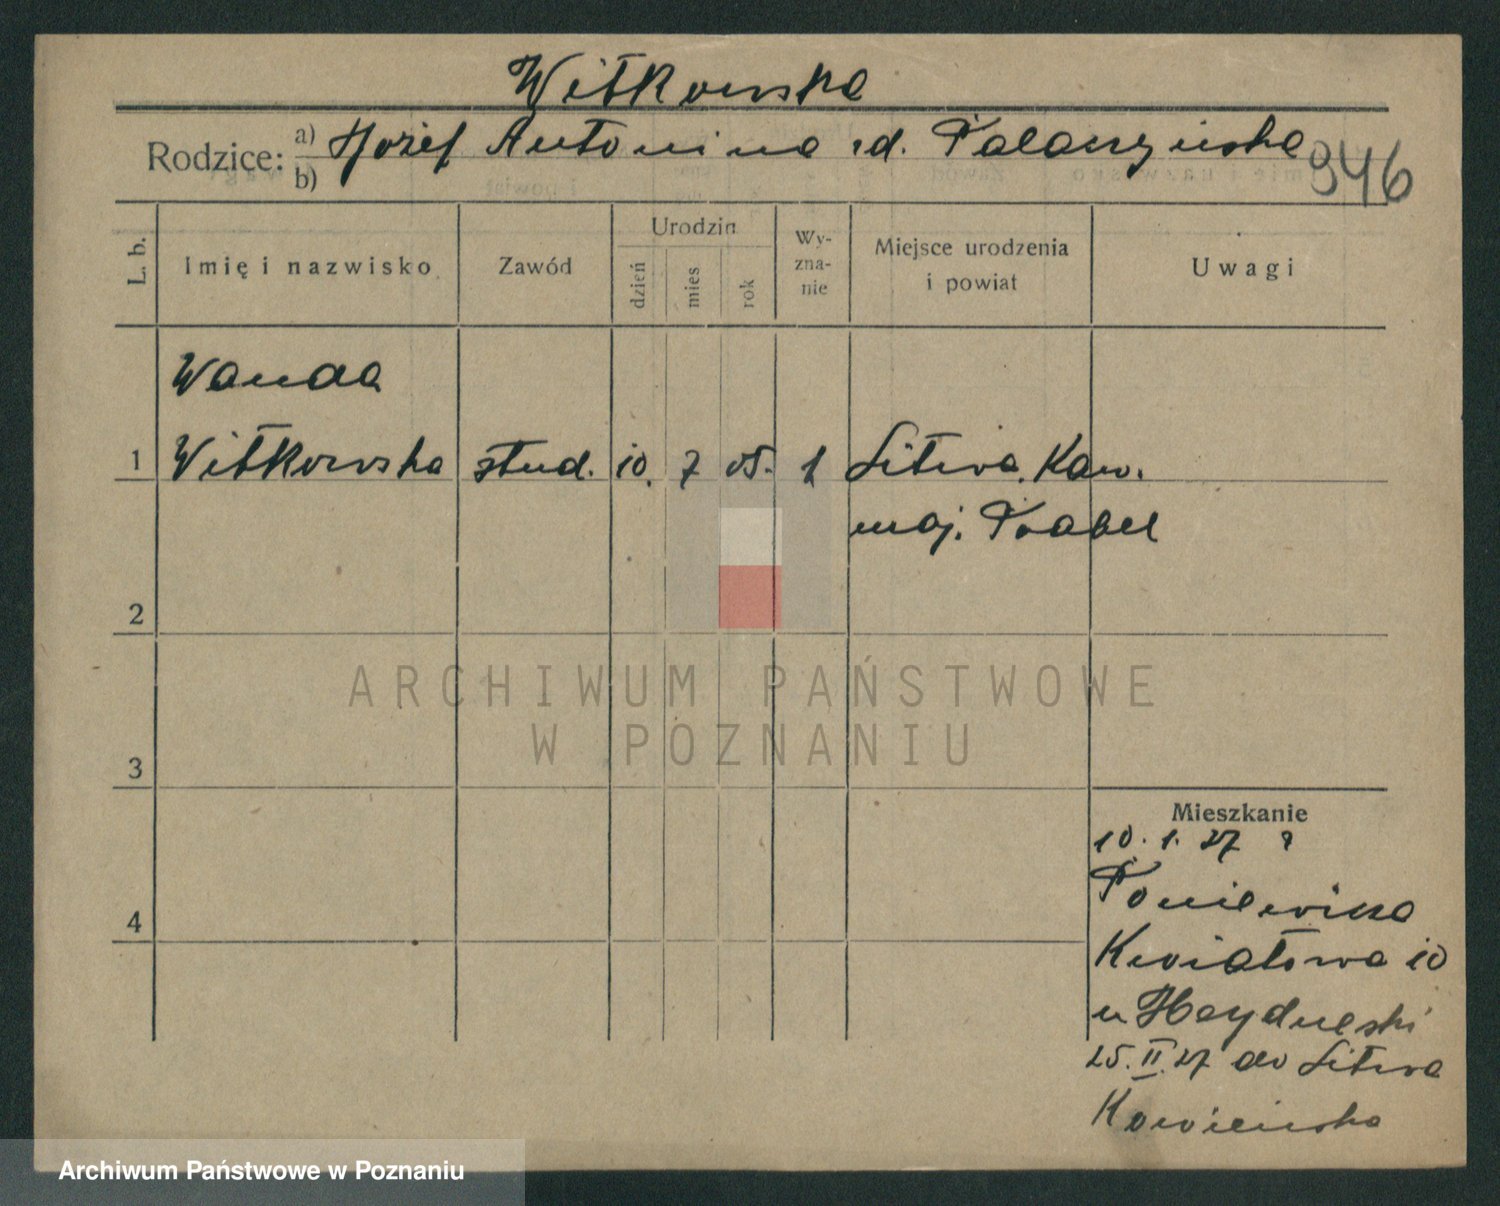 Witkowska
Rodzice: a) Hozef Antonina rd.
b)
946
L. b.
Imię i nazwisko
Zawód
Urodzin
dzień
mies
rok
Wy-
zna-
nie
Miejsce urodzenia
i powiat
Uwagi
Wanda
1 Witkowska stud. 10. 7 05. 1 Litwa. Kow.
maj.
2
3
4
Mieszkanie
10. 1. 27
Kwiatowa 10
u
25. II. 27 do Litwa
Kowieńska
ARCHIWUM PAŃSTWOWE
W POZNANIU
Archiwum Państwowe w Poznaniu